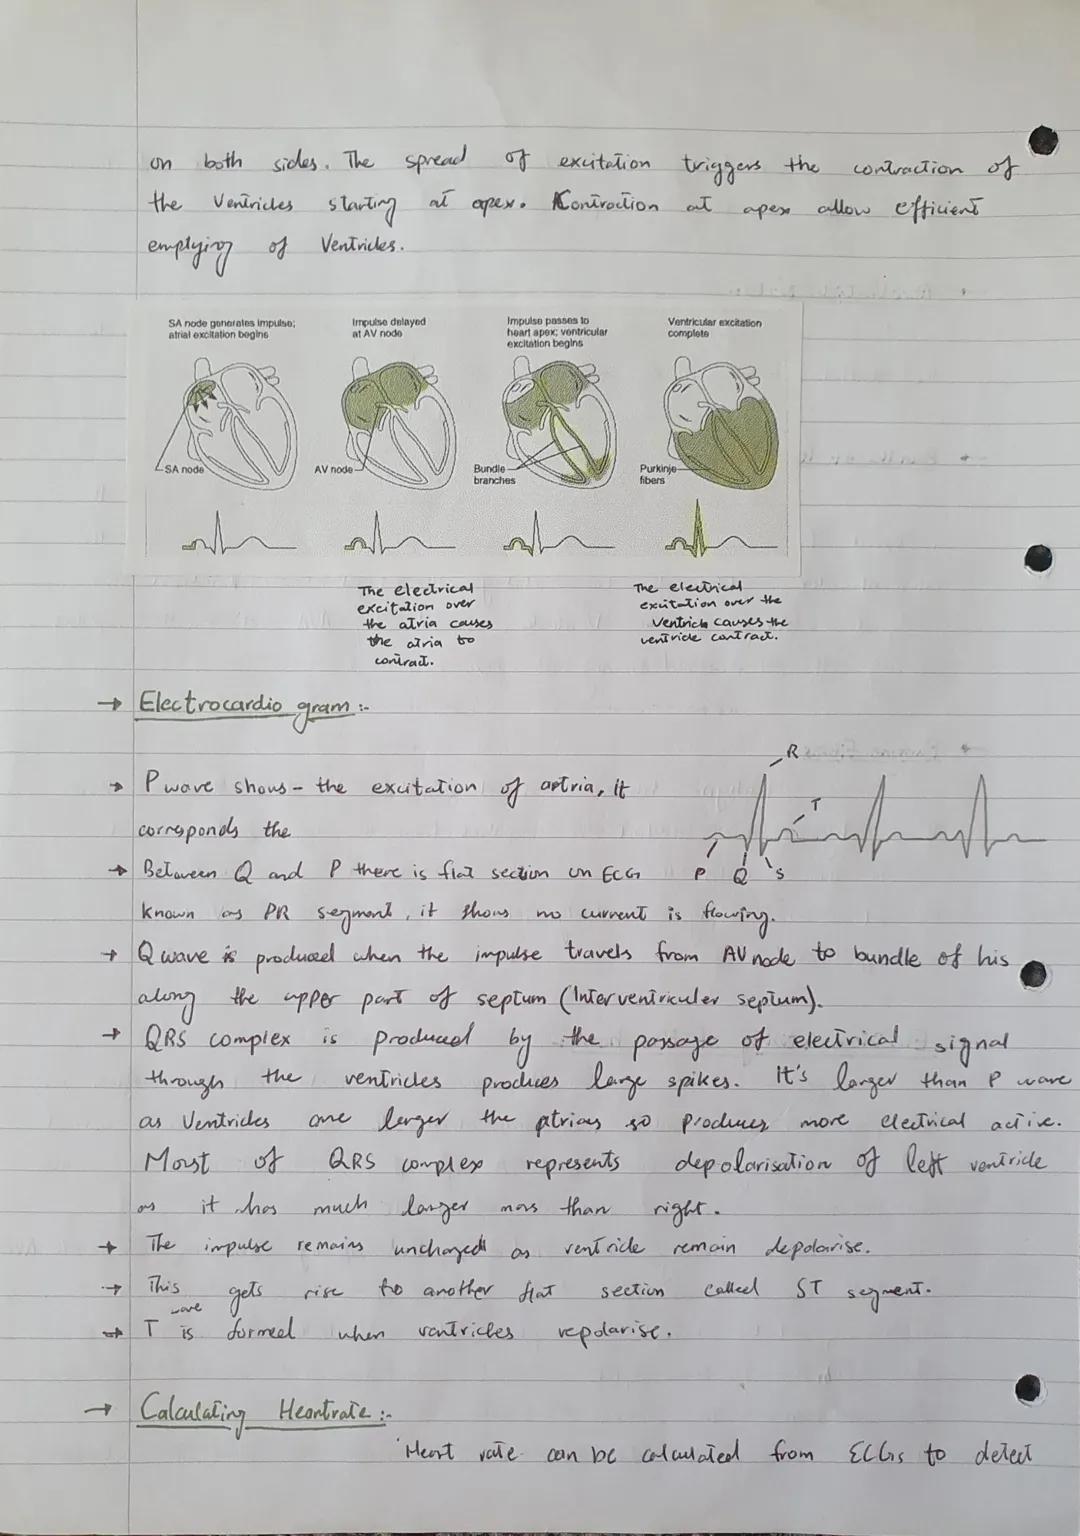 on both sides. The spread of excitation triggers the contraction of
the Ventricles starting at apex. Contraction at apex allow efficient
emptying of Ventricles.
SA node generates impulse;
atrial excitation begins
Impulse delayed
at AV node
Impulse passes to
heart apex; ventricular
excitation begins
Ventricular excitation
complete
SA node
AV node
Bundle
branches
Purkinje
fibers
The electrical
excitation over
the atria causes
the atria to
contract.
The electrical
excitation over the
ventricle causes the
ventricle contract.
→ Electrocardio gram :-
R
T
P Q S
→ P wave shows - the excitation of artria, It
corresponds the
→ Between Q and P there is flat section on ECG
known as PR segment, it shows no current is flowing.
→ Q wave is produced when the impulse travels from AV node to bundle of his
along the upper part of septum (Interventriculer septum).
→ QRS complex is produced by the passage of electrical signal
through the ventricles produces large spikes. It's larger than P wave
as Ventricles are larger the atrias so produces more electrical active.
Most of QRS complex represents depolarisation of left ventricle
as it has much larger mass than right.
→ The impulse remains unchanged as ventricle remain depolarise.
→ This gets rise to another flat section called ST segment.
→ T wave is formed when ventricles repolarise.
→ Calculating Heartrate :-
Heart rate can be calculated from ECGs to detect